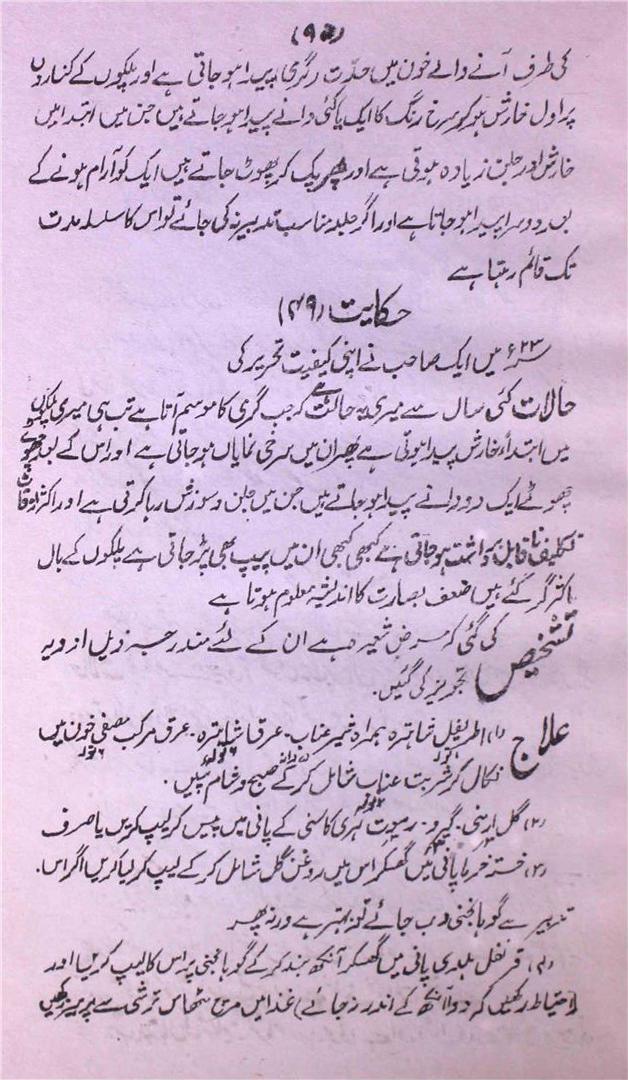 (۹۵)
کی طرف آنے والے خون میں حدّت (گرمی) پیدا ہو جاتی ہے اور پلکوں کے کناروں
پر اول خارش ہو کر سرخ رنگ کا ایک یا کئی دانے پیدا ہو جاتے ہیں جن میں ابتدا میں
خارش اور جلن زیادہ ہوتی ہے اور پھر پک کر پھوٹ جاتے ہیں ایک کو آرام ہونے کے
بعد دوسرا پیدا ہو جاتا ہے اور اگر جلد مناسب تدبیر نہ کی جائے تو اس کا سلسلہ مدت
تک قائم رہتا ہے
حکایت (۴۹)
۶۲۳ میں ایک صاحب نے اپنی کیفیت تحریر کی
حالات کئی سال سے میری یہ حالت ہے کہ جب گرمی کا موسم آتا ہے تب ہی میری پلکوں
میں ابتداءً خارش پیدا ہوتی ہے پھر ان میں سرخی نمایاں ہو جاتی ہے اور اس کے بعد چھوٹے
چھوٹے ایک دو دانے پیدا ہو جاتے ہیں جن میں جلن و سوزش رہا کرتی ہے اور اکثر اوقات
تکلیف ناقابل برداشت ہو جاتی ہے کبھی کبھی ان میں پیپ بھی پڑ جاتی ہے پلکوں کے بال
اکثر گر گئے ہیں ضعف بصارت کا اندیشہ معلوم ہوتا ہے
تشخیص کی گئی کہ مرض شعیرہ ہے ان کے لئے مندرجہ ذیل ادویہ
تجویز کی گئیں۔
علاج (۱) اطریفل شاہترہ ہمراہ شیر عناب۔ عرق شاہترہ۔ عرق مرکب مصفی خون میں
نکال کر شربت عناب شامل کر کے صبح و شام پئیں۔
(۲) گل ارمنی۔ گیرو۔ رسوت ہری کاسنی کے پانی میں پیس کر لیپ کریں یا صرف
(۳) خستہ خرما پانی میں گھسکر اس میں روغن گل شامل کر کے لیپ کر لیا کریں اگر اس۔
تدبیر سے گوہانجنی دب جائے تو بہتر ہے ورنہ پھر
(۴) قرنفل ہلدی پانی میں گھسکر آنکھ بند کر کے گوہانجنی پر اس کا لیپ کر لیا اور
(احتیاط رکھیں کہ دوا آنکھ کے اندر نہ جائے) غذا میں مرچ مٹھاس ترشی سے پرہیز رکھیں